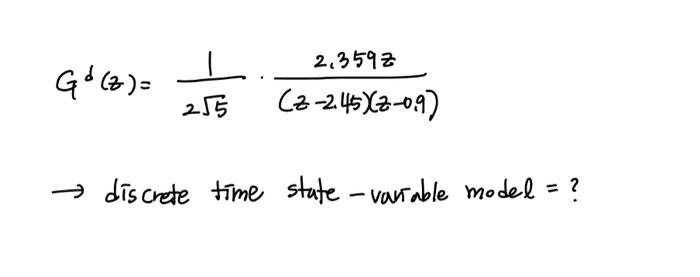 G^d(z) = 1/(2√5) · 2.359z/((z-2.45)(z-0.9))
→ discrete time state-variable model = ?